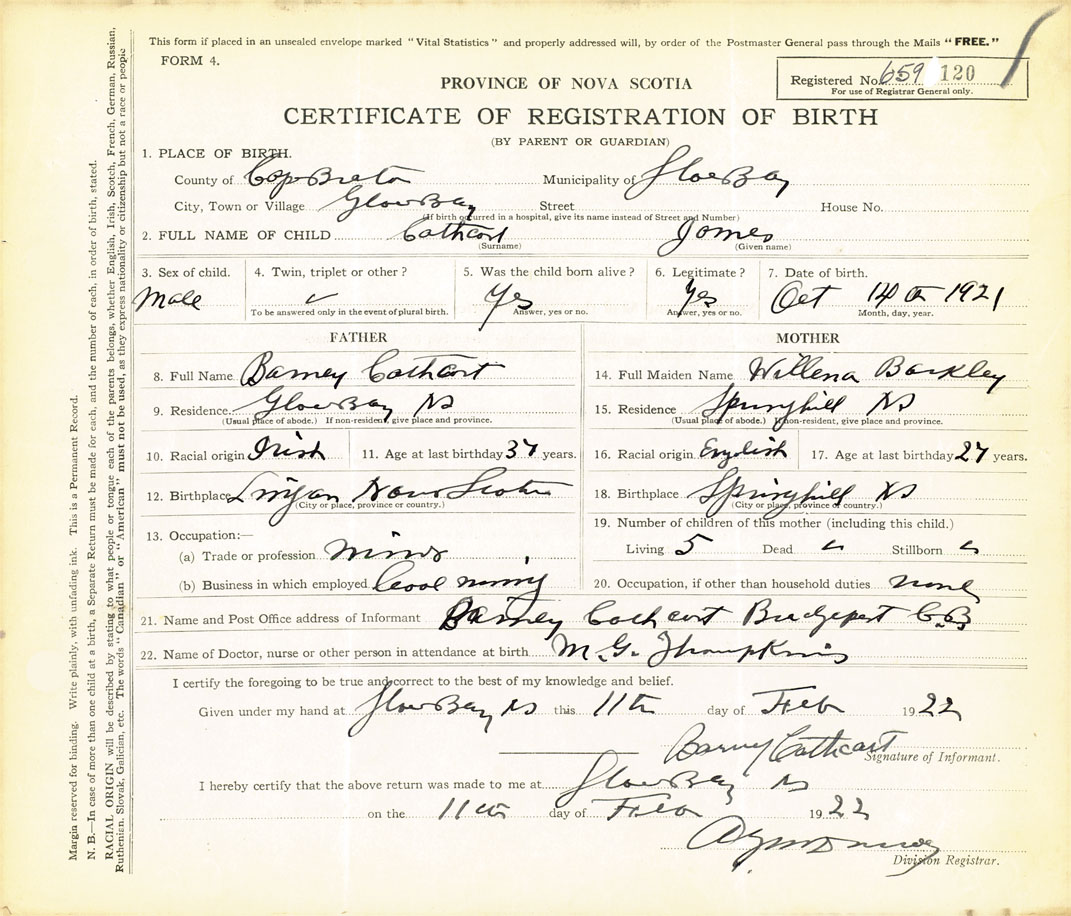 This form if placed in an unsealed envelope marked "Vital Statistics" and properly addressed will, by order of the Postmaster General pass through the Mails "FREE."
FORM 4.
Registered No. 659 120
For use of Registrar General only.
PROVINCE OF NOVA SCOTIA
CERTIFICATE OF REGISTRATION OF BIRTH
(BY PARENT OR GUARDIAN)
1. PLACE OF BIRTH.
County of Cape Breton Municipality of Glace Bay
City, Town or Village Glace Bay Street House No.
(If birth occurred in a hospital, give its name instead of Street and Number)
2. FULL NAME OF CHILD Cathcart James
(Surname) (Given name)
3. Sex of child. 4. Twin, triplet or other? 5. Was the child born alive? 6. Legitimate? 7. Date of birth.
Male ✓ Yes Yes Oct 14th 1921
To be answered only in the event of plural birth. Answer, yes or no. Answer, yes or no. Month, day, year.
FATHER
8. Full Name Barney Cathcart
9. Residence Glace Bay NS
(Usual place of abode.) If non-resident, give place and province.
10. Racial origin Irish 11. Age at last birthday 37 years.
12. Birthplace Lingan Nova Scotia
(City or place, province or country.)
13. Occupation:—
(a) Trade or profession miner
(b) Business in which employed Coal mining
MOTHER
14. Full Maiden Name Willena Barkley
15. Residence Springhill NS
(Usual place of abode.) If non-resident, give place and province.
16. Racial origin English 17. Age at last birthday 27 years.
18. Birthplace Springhill NS
(City or place, province or country.)
19. Number of children of this mother (including this child.)
Living 5 Dead Stillborn
20. Occupation, if other than household duties none
21. Name and Post Office address of Informant Barney Cathcart Bridgeport C.B
22. Name of Doctor, nurse or other person in attendance at birth M. G. Thompkins
I certify the foregoing to be true and correct to the best of my knowledge and belief.
Given under my hand at Glace Bay NS this 11th day of Feb 1922
Barney Cathcart
Signature of Informant.
I hereby certify that the above return was made to me at Glace Bay NS
on the 11th day of Feb 1922
Division Registrar.
Margin reserved for binding. Write plainly, with unfading ink. This is a Permanent Record.
N. B.—In case of more than one child at a birth, a Separate Return must be made for each, and the number of each, in order of birth, stated.
RACIAL ORIGIN will be described by stating to what people or tongue each of the parents belongs, whether English, Irish, Scotch, French, German, Russian,
Ruthenian, Slovak, Galician, etc. The words "Canadian" or "American" must not be used, as they express nationality or citizenship but not a race or people